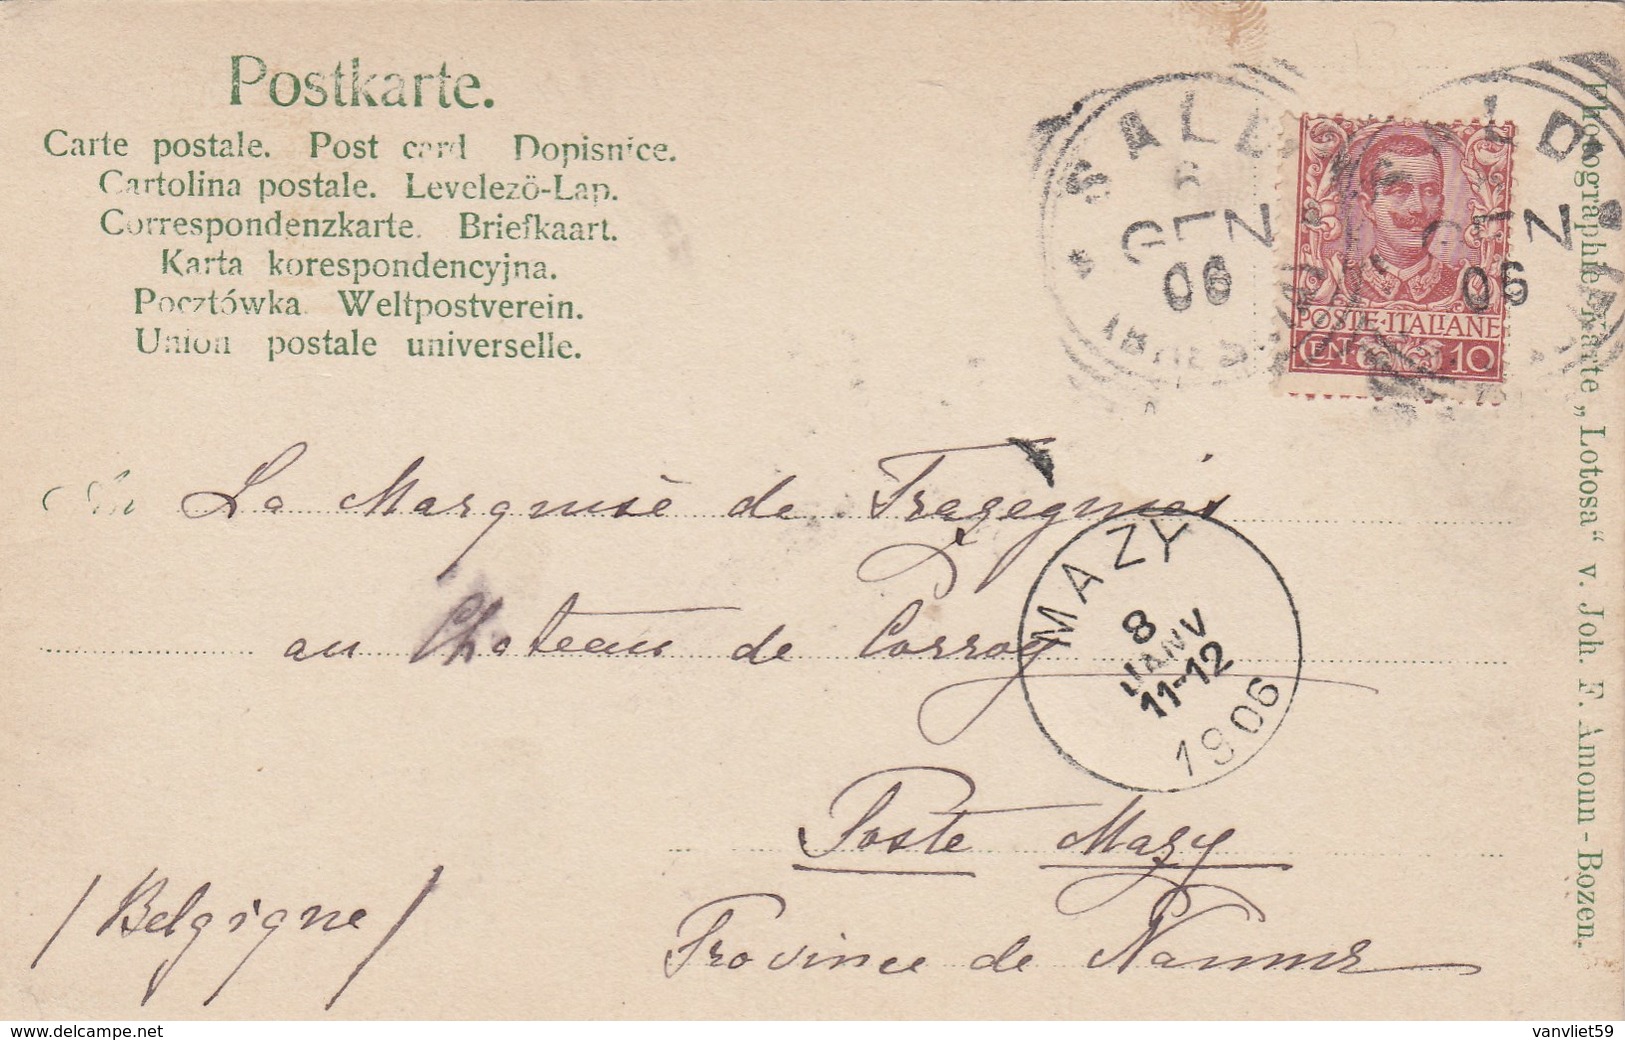 Postkarte.
Carte postale. Post card Dopisnice.
Cartolina postale. Levelezö-Lap.
Correspondenzkarte. Briefkaart.
Karta korespondencyjna.
Pocztówka. Weltpostverein.
Union postale universelle.
SALÒ
06
06
POSTE·ITALIANE
CENT 10
An La Marquise de Trazegnies
au Chateau de Corroy
MAZY
8
JANV
11-12
1906
Poste Mazy
/Belgique/
Province de Namur
Photographie-Karte „Lotosa“ v. Joh. F. Amonn-Bozen.
www.delcampe.net
vanvliet59